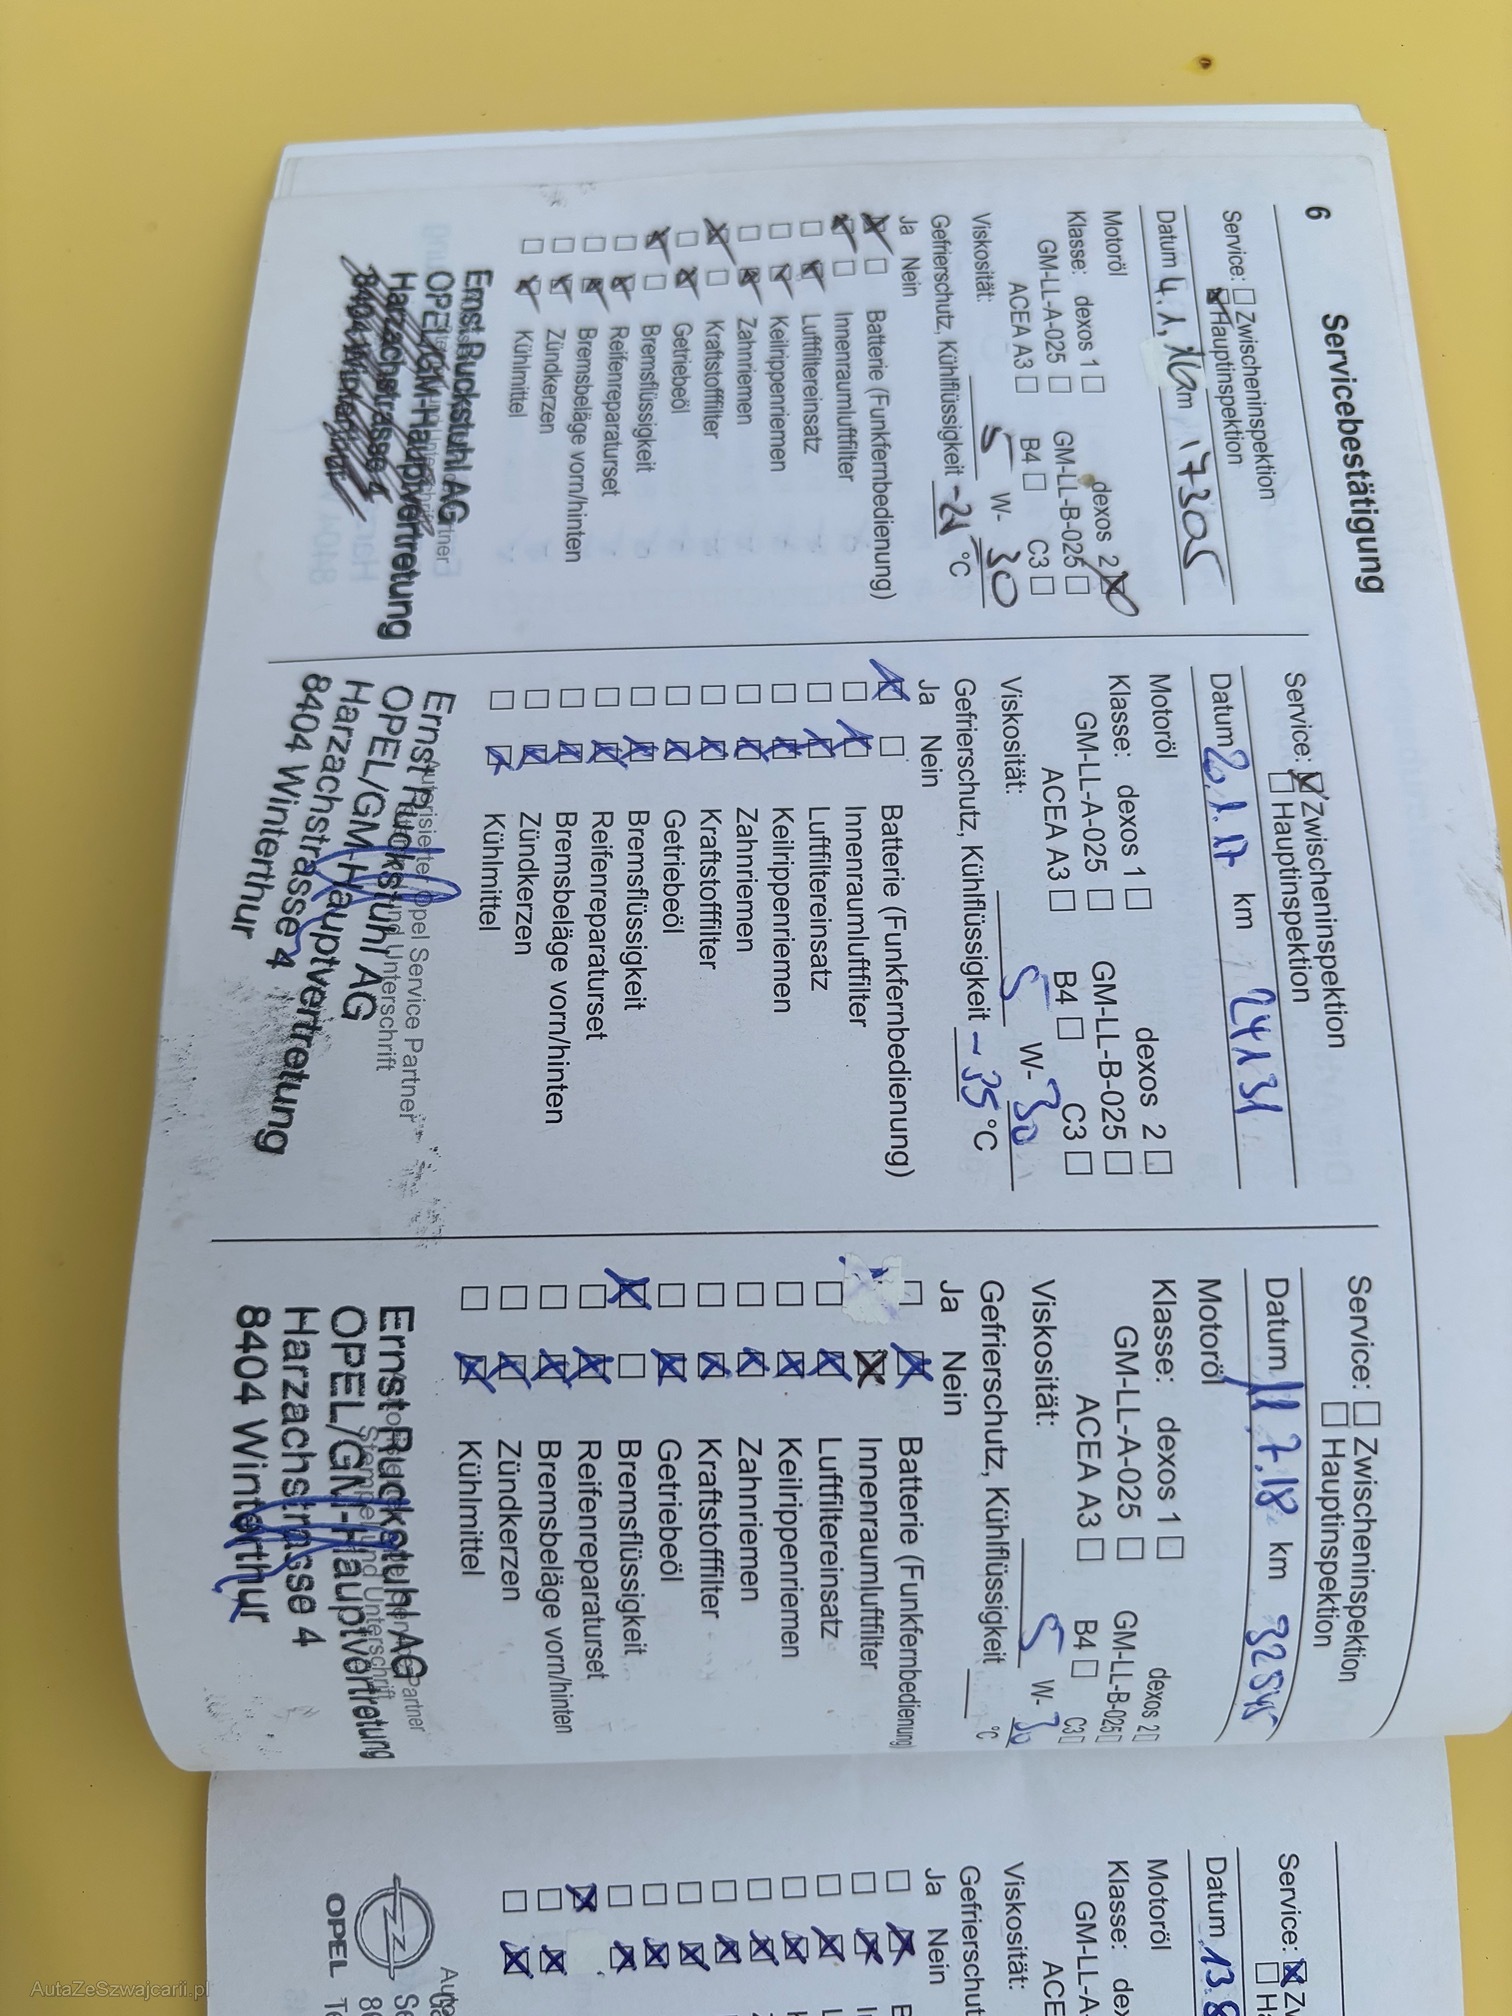 6
Servicebestätigung
Service: Zwischeninspektion
Hauptinspektion
Datum 4.1. km 17305
Motoröl
Klasse: dexos 1 dexos 2
GM-LL-A-025 GM-LL-B-025
ACEA A3 B4 C3
Viskosität: 5 W- 30
Gefrierschutz, Kühlflüssigkeit -21 °C
Ja Nein
Batterie (Funkfernbedienung)
Innenraumluftfilter
Luftfiltereinsatz
Keilrippenriemen
Zahnriemen
Kraftstofffilter
Getriebeöl
Bremsflüssigkeit
Reifenreparaturset
Bremsbeläge vorn/hinten
Zündkerzen
Kühlmittel
Ernst Ruckstuhl AG
OPEL/GM-Hauptvertretung
Harzachstrasse 4
8404 Winterthur
Service: Zwischeninspektion
Hauptinspektion
Datum 20.1.17 km 24131
Motoröl
Klasse: dexos 1 dexos 2
GM-LL-A-025 GM-LL-B-025
ACEA A3 B4 C3
Viskosität: 5 W- 30
Gefrierschutz, Kühlflüssigkeit -35 °C
Ja Nein
Batterie (Funkfernbedienung)
Innenraumluftfilter
Luftfiltereinsatz
Keilrippenriemen
Zahnriemen
Kraftstofffilter
Getriebeöl
Bremsflüssigkeit
Reifenreparaturset
Bremsbeläge vorn/hinten
Zündkerzen
Kühlmittel
Autorisierter Opel Service Partner
und Unterschrift
Ernst Ruckstuhl AG
OPEL/GM-Hauptvertretung
Harzachstrasse 4
8404 Winterthur
Service: Zwischeninspektion
Hauptinspektion
Datum 11.7.18 km 32545
Motoröl
Klasse: dexos 1 dexos 2
GM-LL-A-025 GM-LL-B-025
ACEA A3 B4 C3
Viskosität: 5 W- 30
Gefrierschutz, Kühlflüssigkeit °C
Ja Nein
Batterie (Funkfernbedienung)
Innenraumluftfilter
Luftfiltereinsatz
Keilrippenriemen
Zahnriemen
Kraftstofffilter
Getriebeöl
Bremsflüssigkeit
Reifenreparaturset
Bremsbeläge vorn/hinten
Zündkerzen
Kühlmittel
Partner
Stempel und Unterschrift
Ernst Ruckstuhl AG
OPEL/GM-Hauptvertretung
Harzachstrasse 4
8404 Winterthur
Service: Zw
Ha
Datum 13.
Motoröl
Klasse: de
GM-LL-A-
ACE
Viskosität:
Gefrierschut
Ja Nein
OPEL
AutaZeSzwajcarii.pl